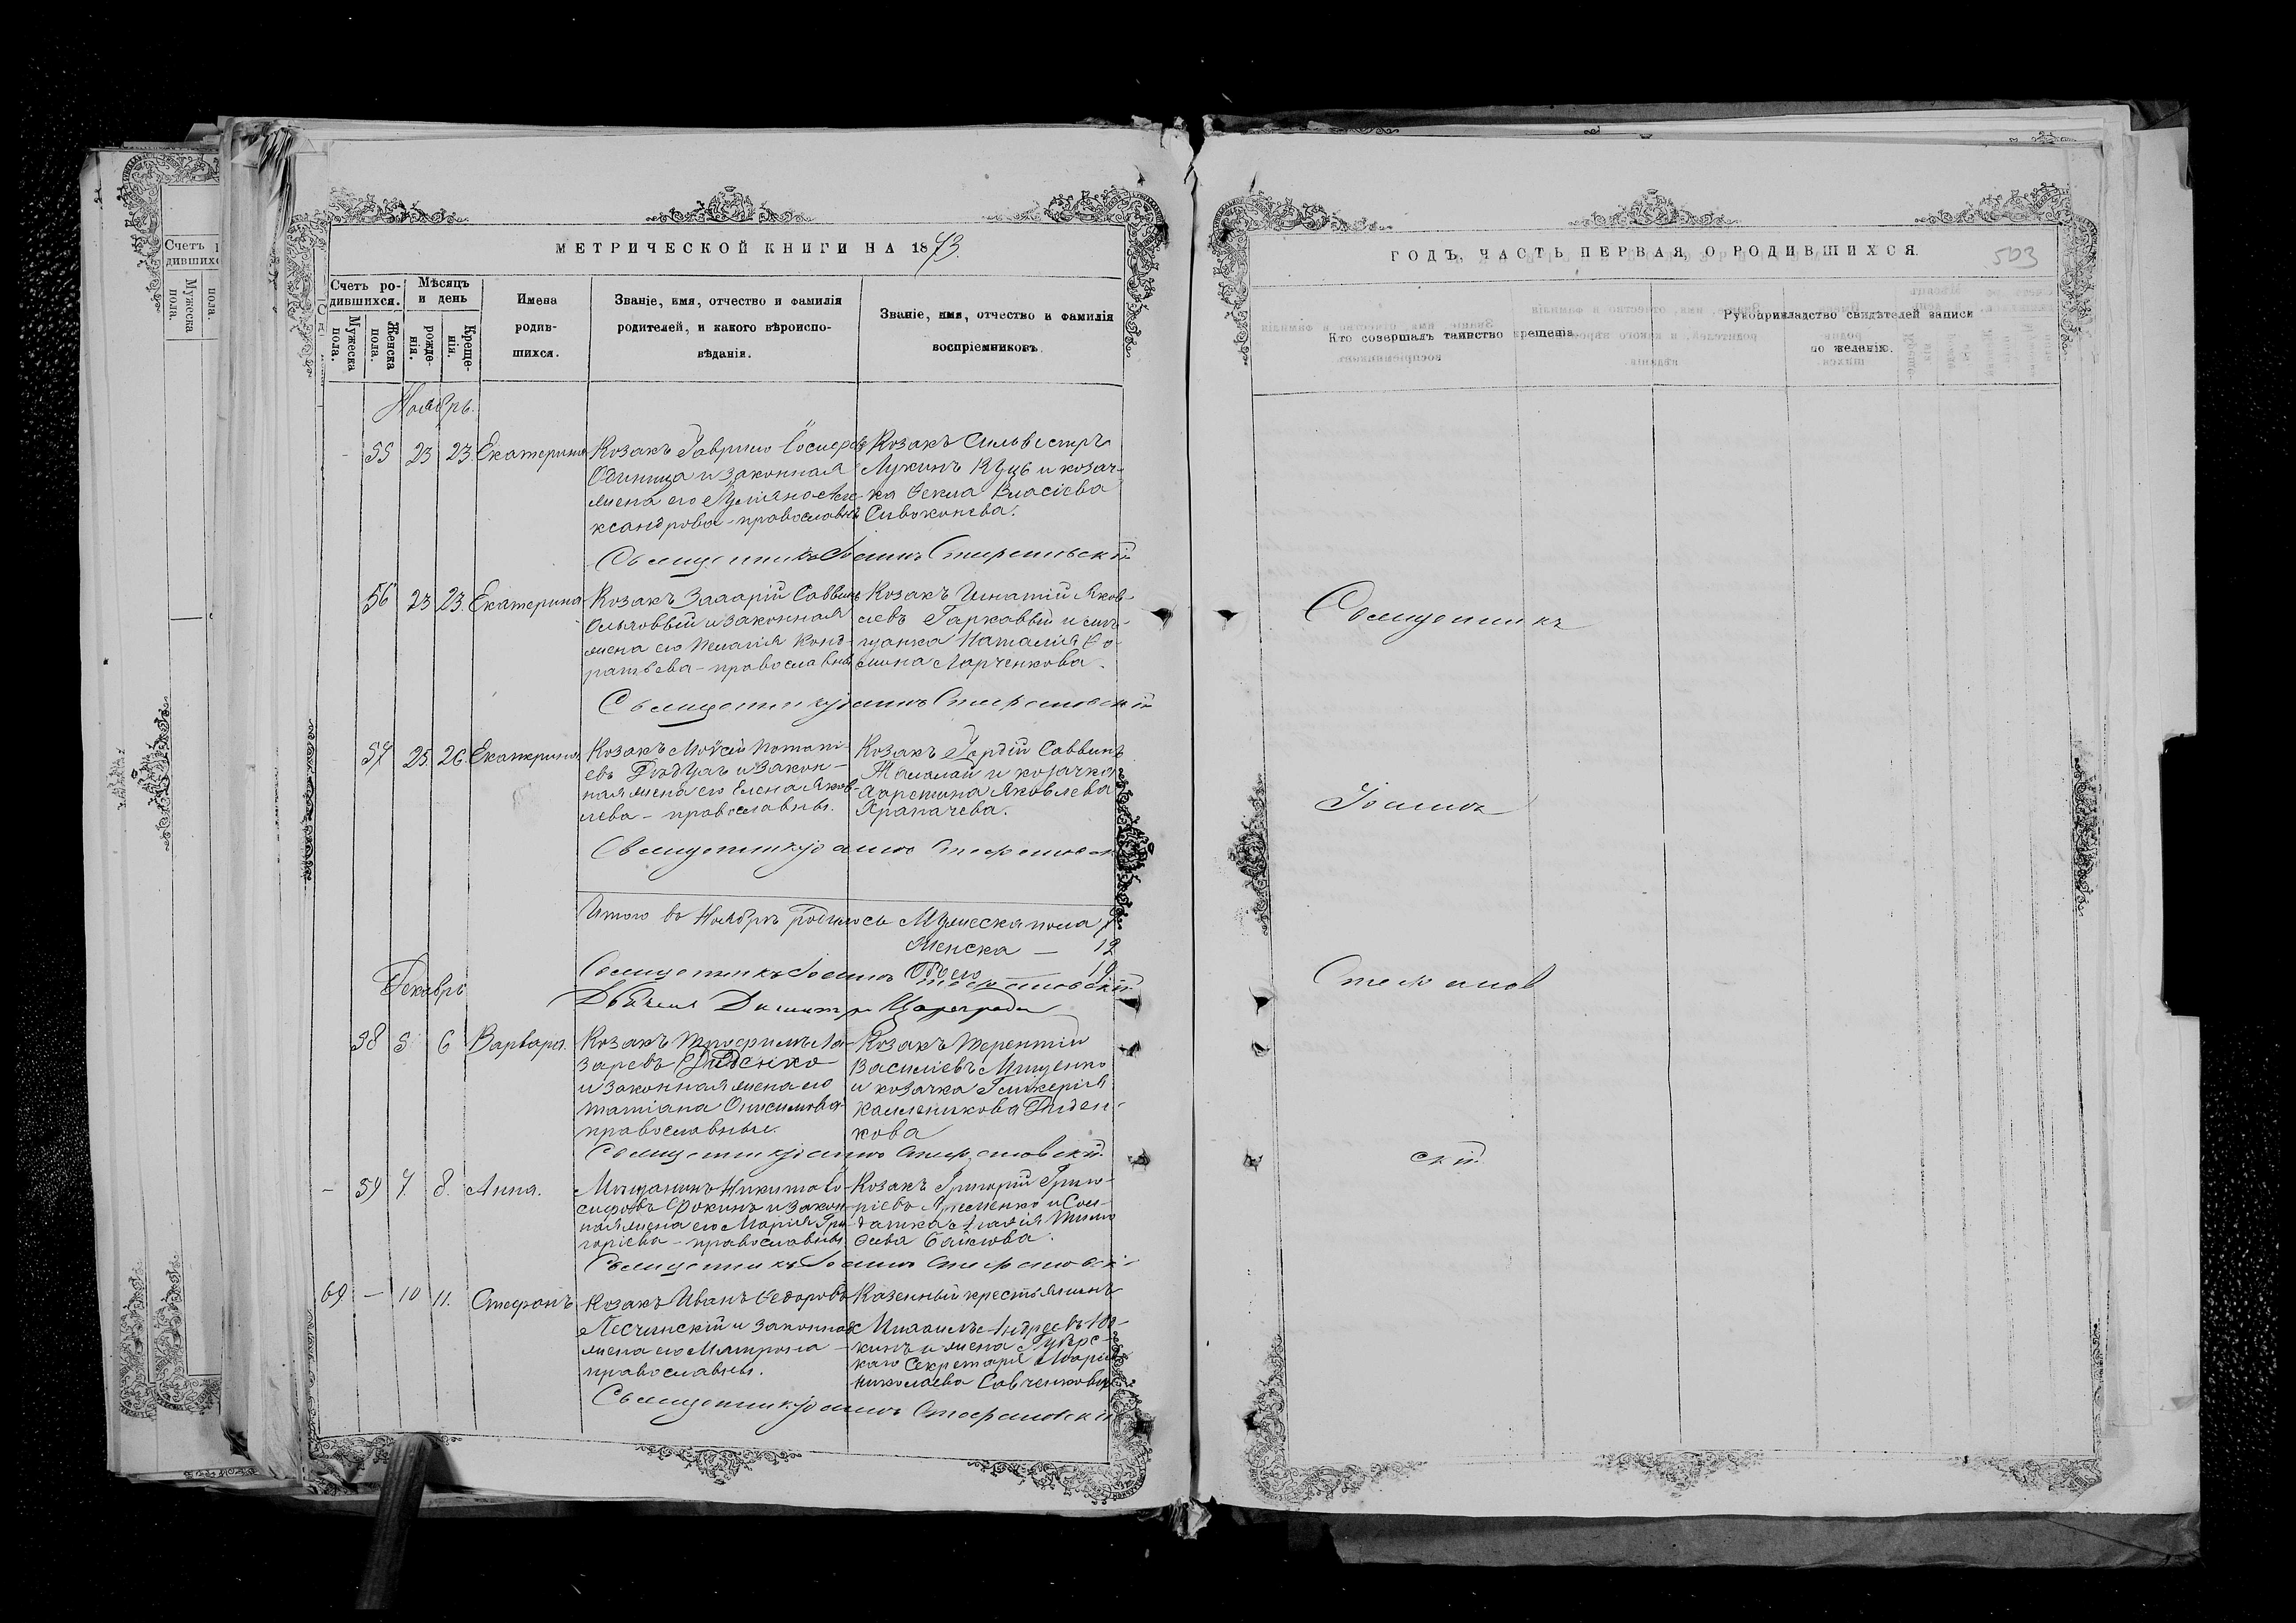 МЕТРИЧЕСКОЙ КНИГИ НА 1873.
Счетъ ро-
дившихся.
Мужеска пола.
Женска пола.
Мѣсяцъ
и день
рожде-
нія.
Креще-
нія.
Имена
родив-
шихся.
Званіе, имя, отчество и фамилія
родителей, и какого вѣроиспо-
вѣданія.
Званіе, имя, отчество и фамилія
воспріемниковъ.
Ноябрь.
- 55 23 23. Екатерина
Козакъ Гавриило Іосифовъ
Одиница и законная
жена его Іуліяна Але-
ксандрова - православн.
Козакъ Сильвестръ
Лукинъ Куць и козач-
ка Ѳекла Власіева
Сивоконева.
Священникъ Іоаннъ Стефановскій
56 23 23. Екатерина
Козакъ Захарій Саввинъ
и законная
жена его Пелагія Конд-
ратьева - православны
Козакъ Игнатій Яков-
левъ Гаркавый и
Наталія Ѳо-
мина Марченкова.
Священникъ Іоаннъ Стефановскій
57 25 26. Екатерина
Козакъ Моѵсей Потапі-
евъ и закон-
ная жена его Елена Яков-
лева - православны.
Козакъ Гордій Саввинъ
и козачка
Яковлева
Храпачева.
Священникъ Іоаннъ Стефановск
Итого въ Ноябрѣ родилось Мужеска пола 7
Женска — 12
Обоего — 19
Священникъ Іоаннъ Стефановскій
Дьячекъ Димитрій
Декабрь
58 5 6 Варвара.
Козакъ Трофимъ Ла-
заревъ Диденко
и законная жена его
Татіана Онисимова
православные.
Козакъ Терентій
Василіевъ Мищенко
и козачка Гликерія
Калленикова Диден-
кова
Священникъ Іоаннъ Стефановскій.
- 59 7. 8. Анна.
Мѣщанинъ Никита Іо-
сифовъ Фокинъ и закон-
ная жена его Марія Гри-
горіева - православны.
Козакъ Григорій Григо-
ріевъ Яременко и Сол-
датка
Священникъ Іоаннъ Стефановскі
69 — 10 11. Стефанъ
Козакъ Иванъ Ѳедоровъ
Лесчинскій и законная
жена его Матрона —
православны.
Казенный крестьянинъ
Михаилъ Андреевъ
и жена Губерс-
каго Секретаря Марія
Николаева Савченкова
Священникъ Іоаннъ Стефановскій
ГОДЪ, ЧАСТЬ ПЕРВАЯ, О РОДИВШИХСЯ.
503
Кто совершалъ таинство крещенія.
Рукоприкладство свидѣтелей записи
по желанію.
Священникъ
Іоаннъ
Стефанов
скій